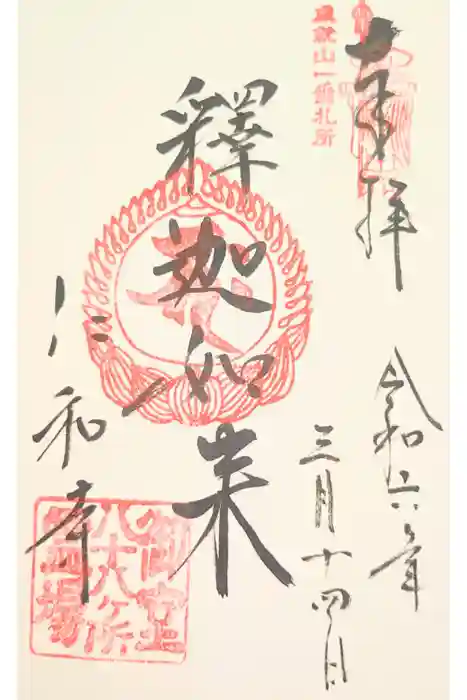 奉拝
成就山一番札所
令和六年
三月十四日
釋迦如来
仁和寺
御室
八十八ヶ所
霊場